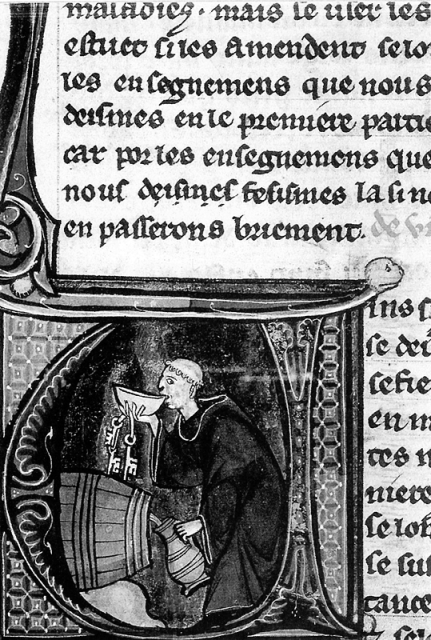 maladies. mais se user les
estuet si les amendent selo
les ensegnemens que nous
desimes en le premiere partie
car por les ensegnemens que
nous desimes la
en passerons briement. de vi
ins s
se dei
en m
tes n
niere
se
se sus
tance